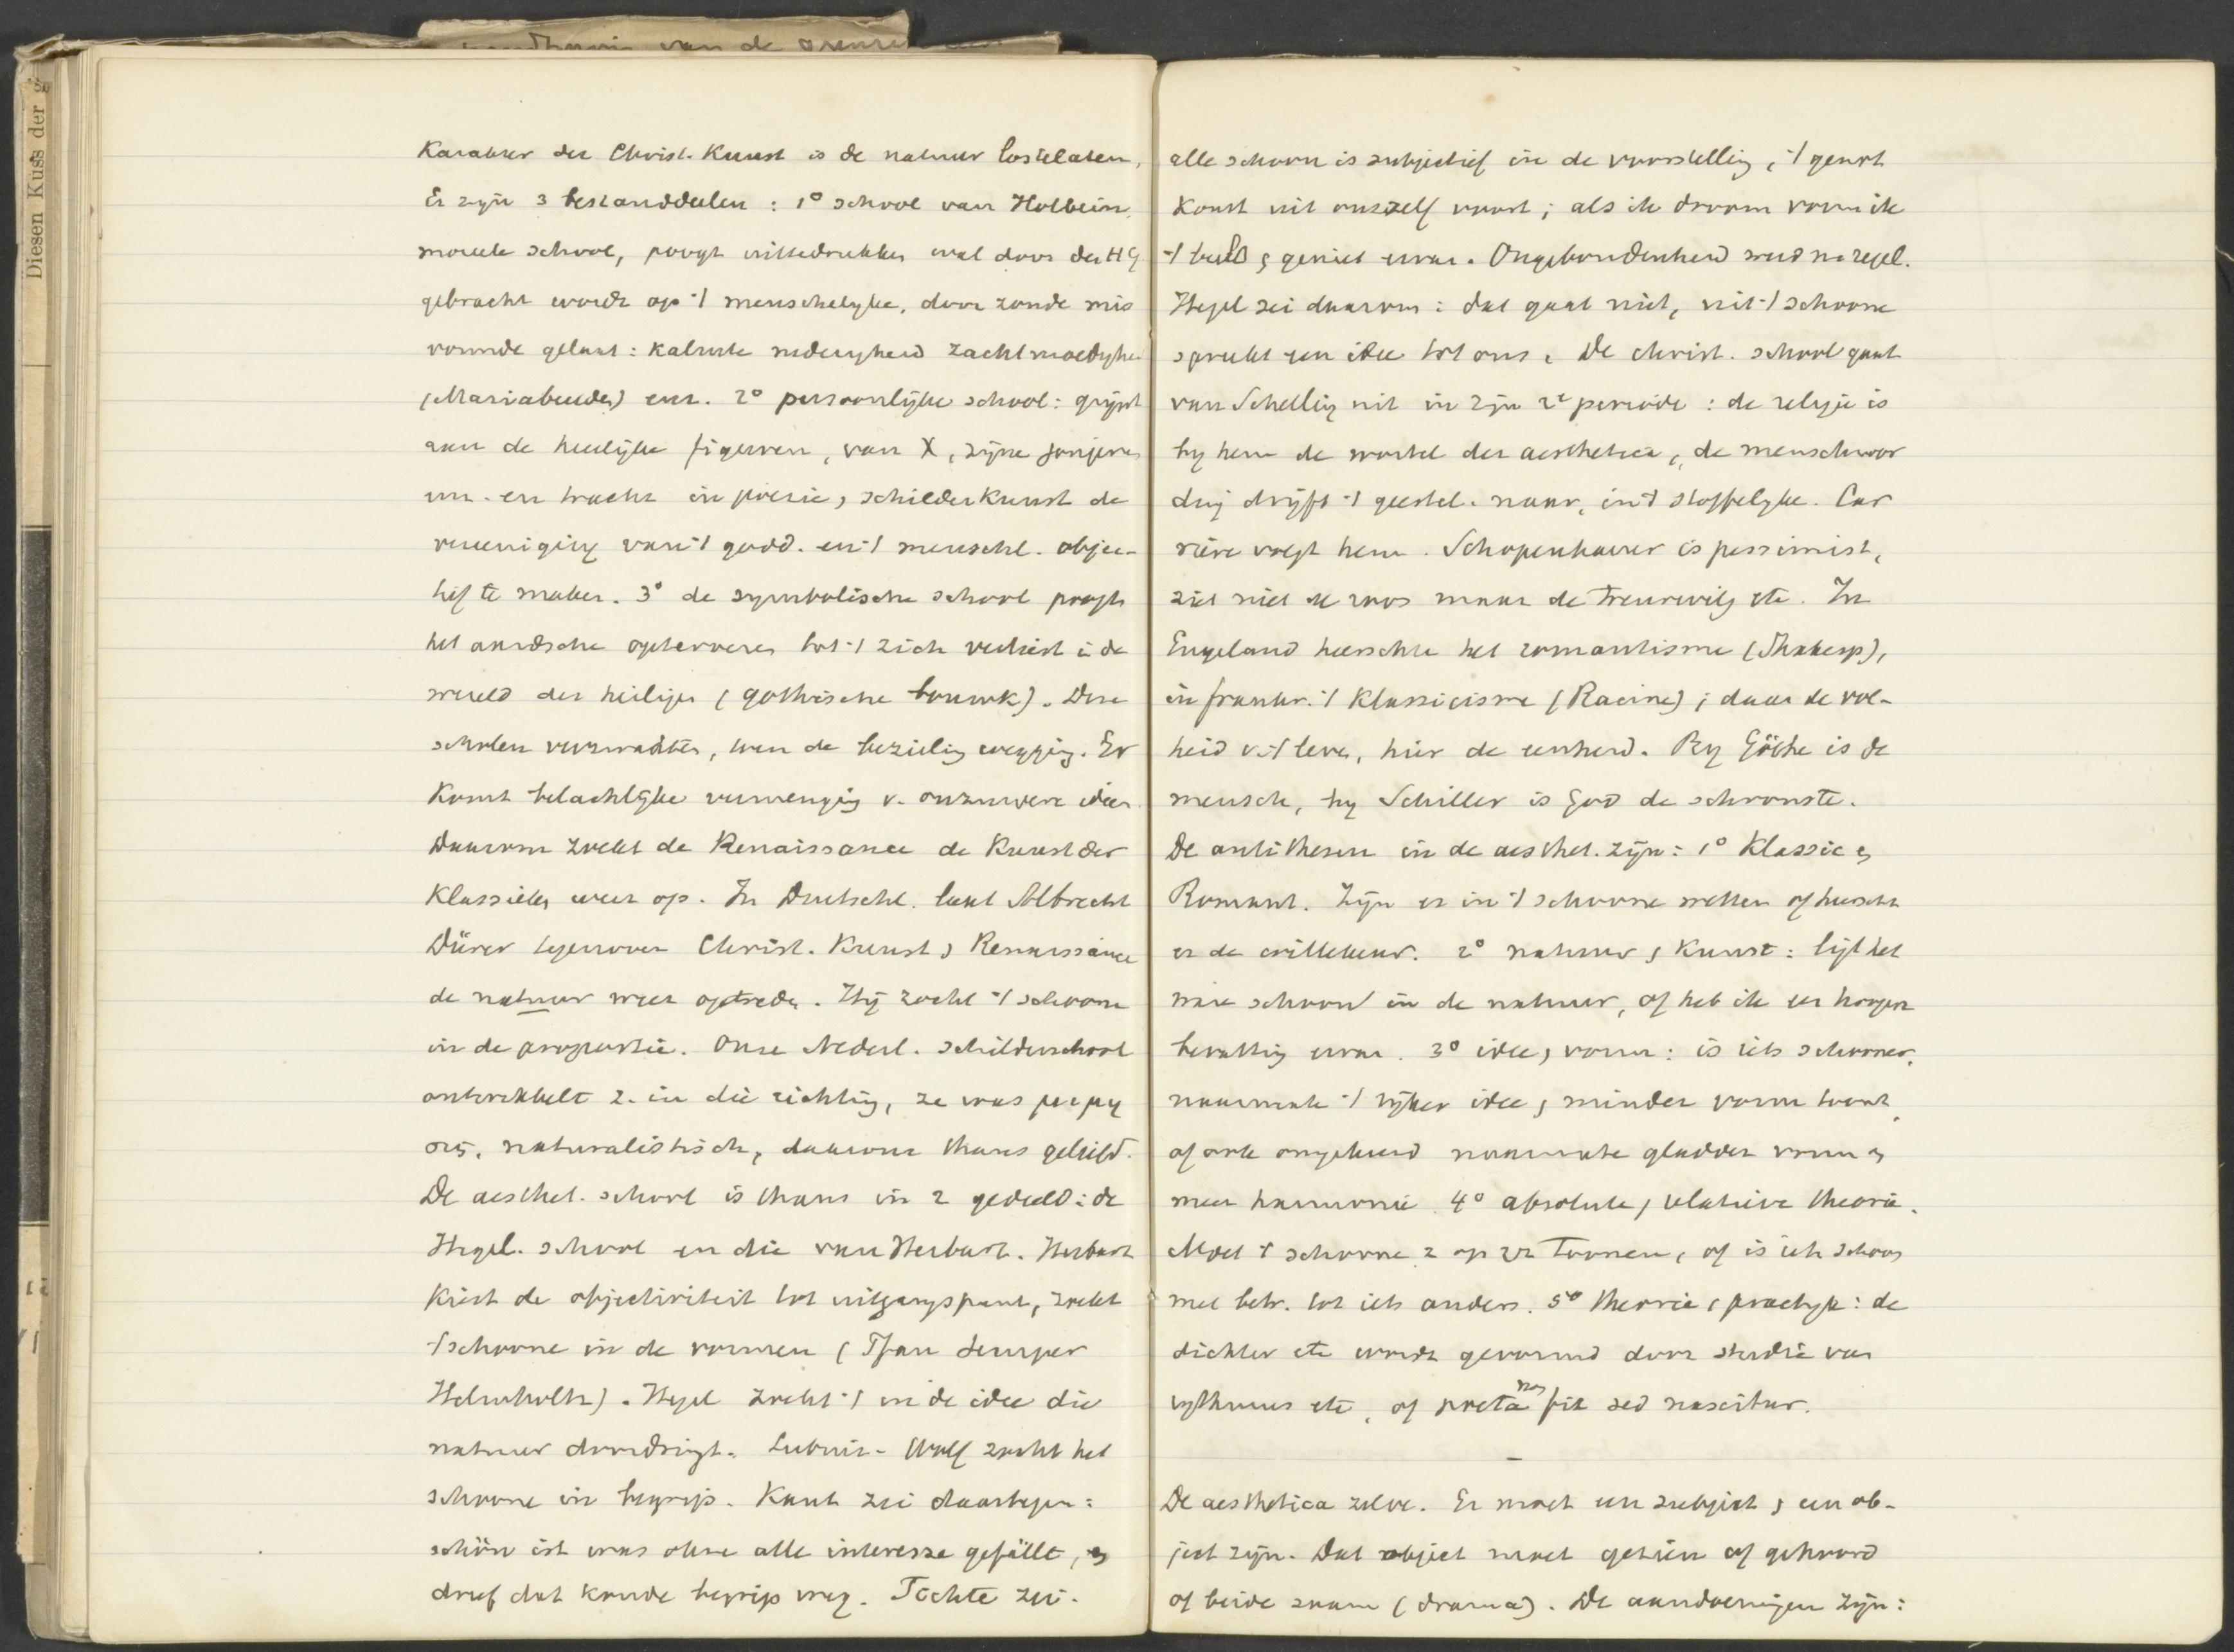 Diesen Kuss der
van de grenzen
Karakter der Christ. Kunst is de natuur lostelaten,
Er zijn 3 bestanddeelen : 1° school van Holbein,
moreele school, poogt uittedrukken wat door den HG
gebracht wordt op 't menschelyke, door zonde mis
vormde gelaat : kalmte nederigheid zachtmoedighe
(Mariabeelden) enz. 2° persoonlijke school : grijpt
aan de heerlijke figuren, van X, zijne jongeren
enz. en tracht in poëzie, schilderkunst de
vereeniging van 't godd. en 't menschl. objec-
tief te maken. 3° de symbolische school poogt
het aardsche optevoeren tot 't zich verliest i de
wereld der heiligen (gothische bouwk). Deze
scholen verzwakten, toen de bezieling wegging. Er
komt belachlijke vermenging v. onzuivere ideen.
Daarom zoekt de Renaissance de Kunst der
Klassieken weer op. In Duitschl. laat Albrecht
Dürer tegenover Christ. Kunst, Renaissance
de natuur weer optreden. Hij zocht 't schoone
in de proportie. Onze Nederl. schilderschool
ontwikkelt z. in die richting, ze was
naturalistisch, daarom thans geliefd.
De aesthet. school is thans in 2 gedeeld : de
Hegel. school en die van Herbart. Herbart
kiest de objectiviteit tot uitgangspunt, zoekt
't schoone in de vormen (Semper
Helmholtz). Hegel zoekt 't in de idee die
natuur doordringt. Leibnitz - Wolf zocht het
schoone in begrip. Kant zei daartegen :
schön ist was ohne alle interesse gefällt, en
dreef dat koude begrip weg. Fichte zei.
alle schoon is subjectief in de voorstelling, 't genot
komt uit onszelf voort ; als ik droom vorm ik
't beeld, geniet ervan. Ongebondenheid werd nu regel.
Hegel zei daarom : dat gaat niet, uit 't schoone
spreekt een idee tot ons. De christ. school gaat
van Schelling uit in zijn 2e periode : de religie is
by hem de wortel der aesthetica, de menschwor
ding drijft 't geestel. naar, in 't stoffelyke. Car
rière volgt hem. Schopenhauer is pessimist,
ziet niet de roos maar de treurwilg etc. In
Engeland heerschte het romantisme (Shakesp),
in frankr. 't Klassicisme (Racine) ; daar de vol-
heid v. 't leven, hier de eenheid. By Göthe is de
mensch, by Schiller is God de schoonste.
De antithesen in de aesthet. zijn : 1° Klassic en
Romant. Zijn er in 't schoone wetten of heerscht
er de willekeur. 2° natuur, Kunst : ligt het
ware schoon in de natuur, of heb ik er hoogere
bevatting ervan. 3° idee, vorm : is iets schooner,
naarmate 't rijker idee, minder vorm toont,
of ook omgekeerd naarmate gladder vorm en
meer harmonie. 4° absolute, relatieve theorie.
Moet 't schoone z op zz toonen, of is iets schoon
met betr. tot iets anders. 5° theorie, practyk : de
dichter etc wordt gevormd door studie van
rythmus etc, of poeta non fit sed nascitur.
—
De aesthetica zelve. Er moet een subject, een ob-
ject zijn. Dat object moet gezien of gehoord
of beide zaam (drama). De aandoeningen zijn :